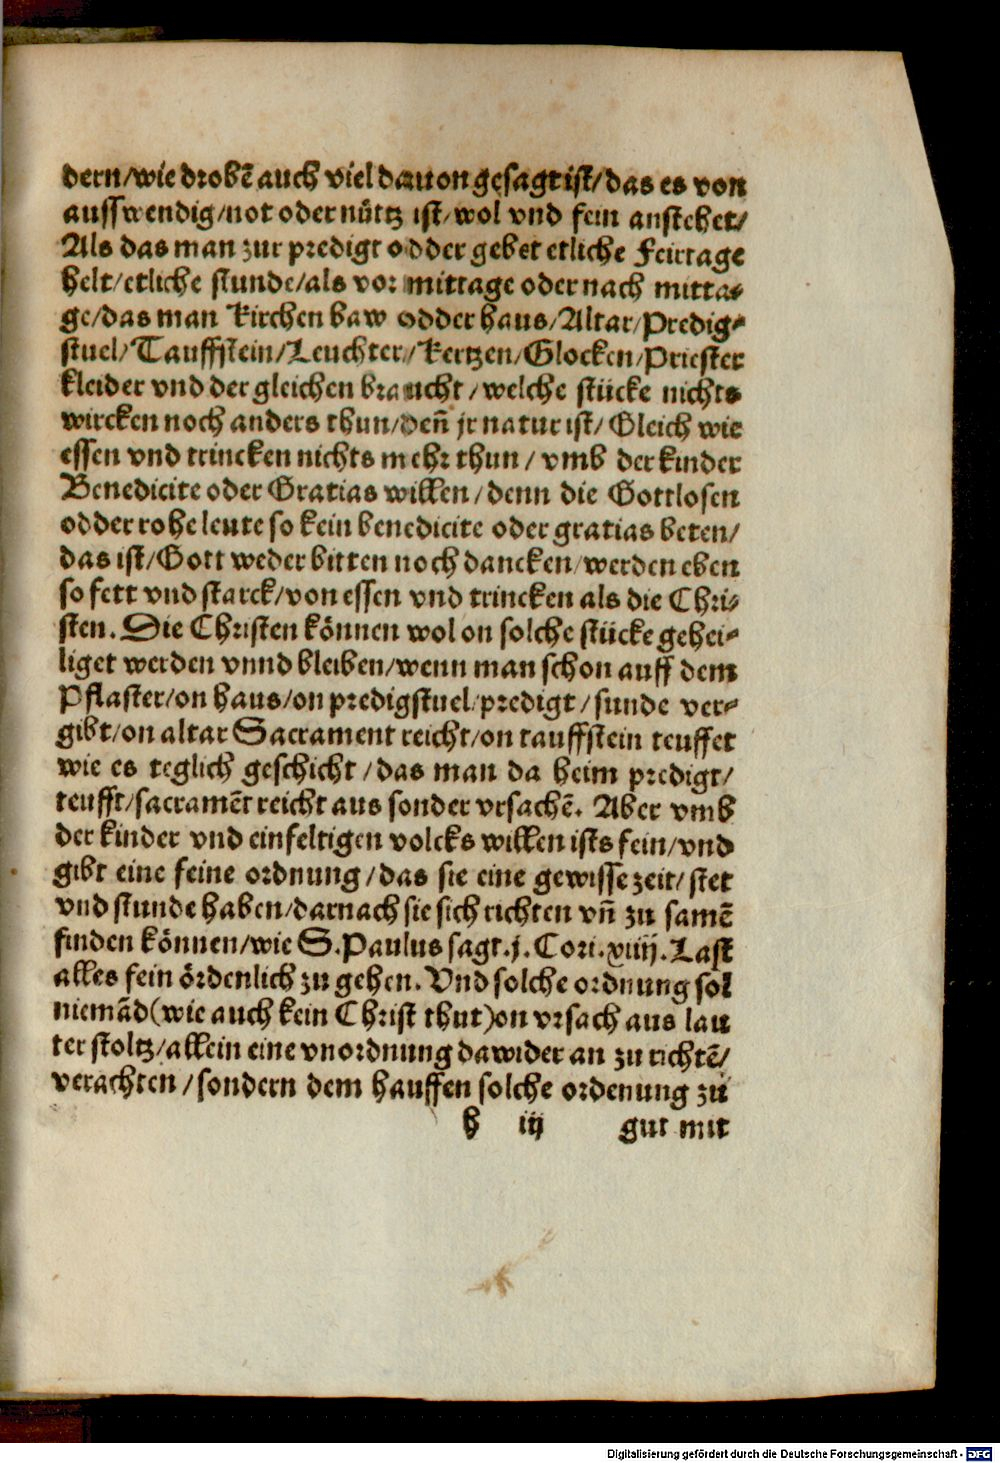 dern/wie drobē auch viel dauon gesagt ist/das es von
ausswendig/not oder nütz ist/wol vnd fein anstehet/
Als das man zur predigt odder gebet etliche Feirtage
helt/etliche stunde/als vor mittage oder nach mitta-
ge/das man Kirchen baw odder haus/Altar/Predig-
stuel/Tauffstein/Leuchter/Kertzen/Glocken/Priester
kleider vnd der gleichen braucht/welche stücke nichts
wircken noch anders thun/deñ jr natur ist/Gleich wie
essen vnd trincken nichts mehr thun/vmb der kinder
Benedicite oder Gratias willen/denn die Gottlosen
odder rohe leute so kein benedicite oder gratias beten/
das ist/Gott weder bitten noch dancken/werden eben
so fett vnd starck/von essen vnd trincken als die Chri-
sten. Die Christen können wol on solche stücke gehei-
liget werden vnnd bleiben/wenn man schon auff dem
Pflaster/on haus/on predigstuel/predigt/sunde ver-
gibt/on altar Sacrament reicht/on tauffstein teuffet
wie es teglich geschicht/das man da heim predigt/
teufft/sacramēt reicht aus sonder vrsachē. Aber vmb
der kinder vnd einfeltigen volcks willen ists fein/vnd
gibt eine feine ordnung/das sie eine gewisse zeit/stet
vnd stunde haben/darnach sie sich richten vñ zu samē
finden können/wie S. Paulus sagt.j. Cori.xiiij. Last
alles fein ördenlich zu gehen. Vnd solche ordnung sol
niemād(wie auch kein Christ thut)on vrsach aus lau
ter stoltz/allein eine vnordnung dawider an zu richtē/
verachten/sondern dem hauffen solche ordenung zu
h iij gut mit
Digitalisierung gefördert durch die Deutsche Forschungsgemeinschaft - DFG